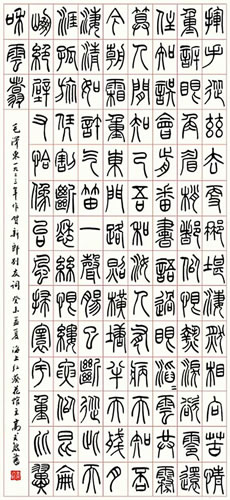 揮手從茲去更那堪淒然相向苦情
重訴眼角眉梢都似恨熱淚欲零還
住知誤會前番書語過眼滔滔雲霧
算人間知己吾和汝人有病天知否
今朝霜重東門路照橫塘半天殘月
淒清如許汽笛一聲腸已斷從此天
涯孤旅憑割斷愁絲恨縷要似崑崙
崩絕壁又恰像台風掃寰宇重比翼
和雲翥
毛澤東一九二三年作賀新郎別友詞 癸未孟夏海上紅葵花館主高式熊書